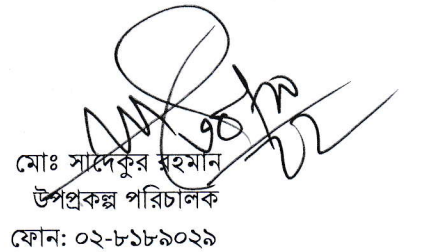 মোঃ সাদেকুর রহমান
উপপ্রকল্প পরিচালক
ফোন: ০২-৮১৮৯০২৯